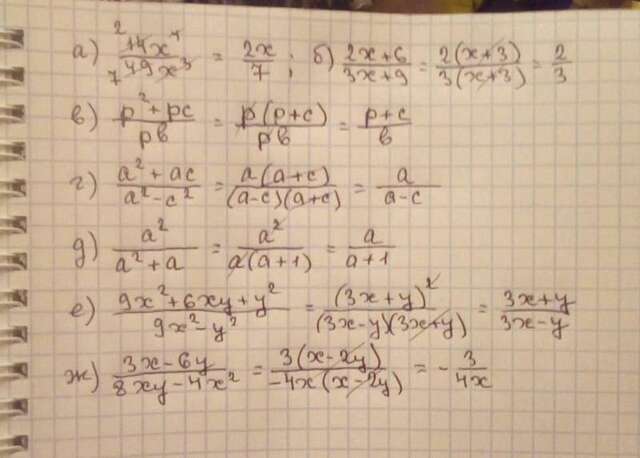 а) 14x⁴/49x³ = 2x/7 ; б) 2x+6/3x+9 = 2(x+3)/3(x+3) = 2/3
в) p²+pc/pв = p(p+c)/pв = p+c/в
г) a²+ac/a²-c² = a(a+c)/(a-c)(a+c) = a/a-c
д) a²/a²+a = a²/a(a+1) = a/a+1
е) 9x²+6xy+y²/9x²-y² = (3x+y)²/(3x-y)(3x+y) = 3x+y/3x-y
ж) 3x-6y/8xy-4x² = 3(x-2y)/-4x(x-2y) = -3/4x